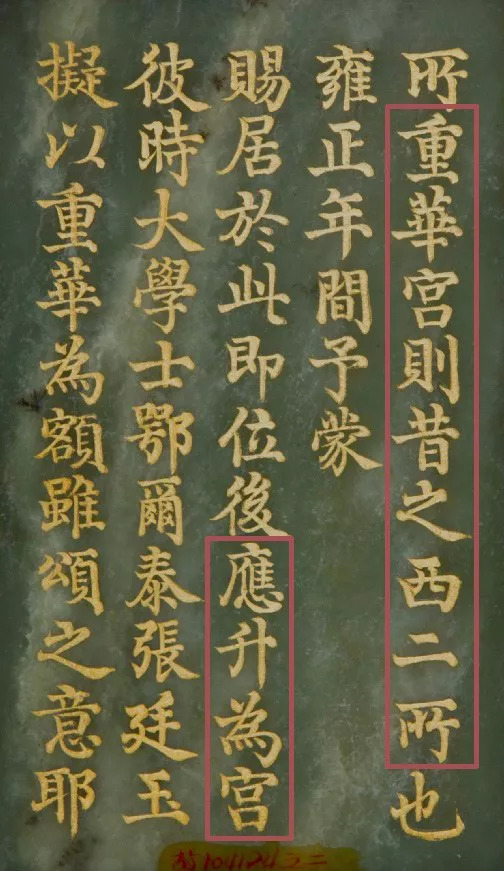 所重華宮則昔之西二所也
雍正年間予蒙
賜居於此即位後應升為宮
彼時大學士鄂爾泰張廷玉
擬以重華為額雖頌之意耶